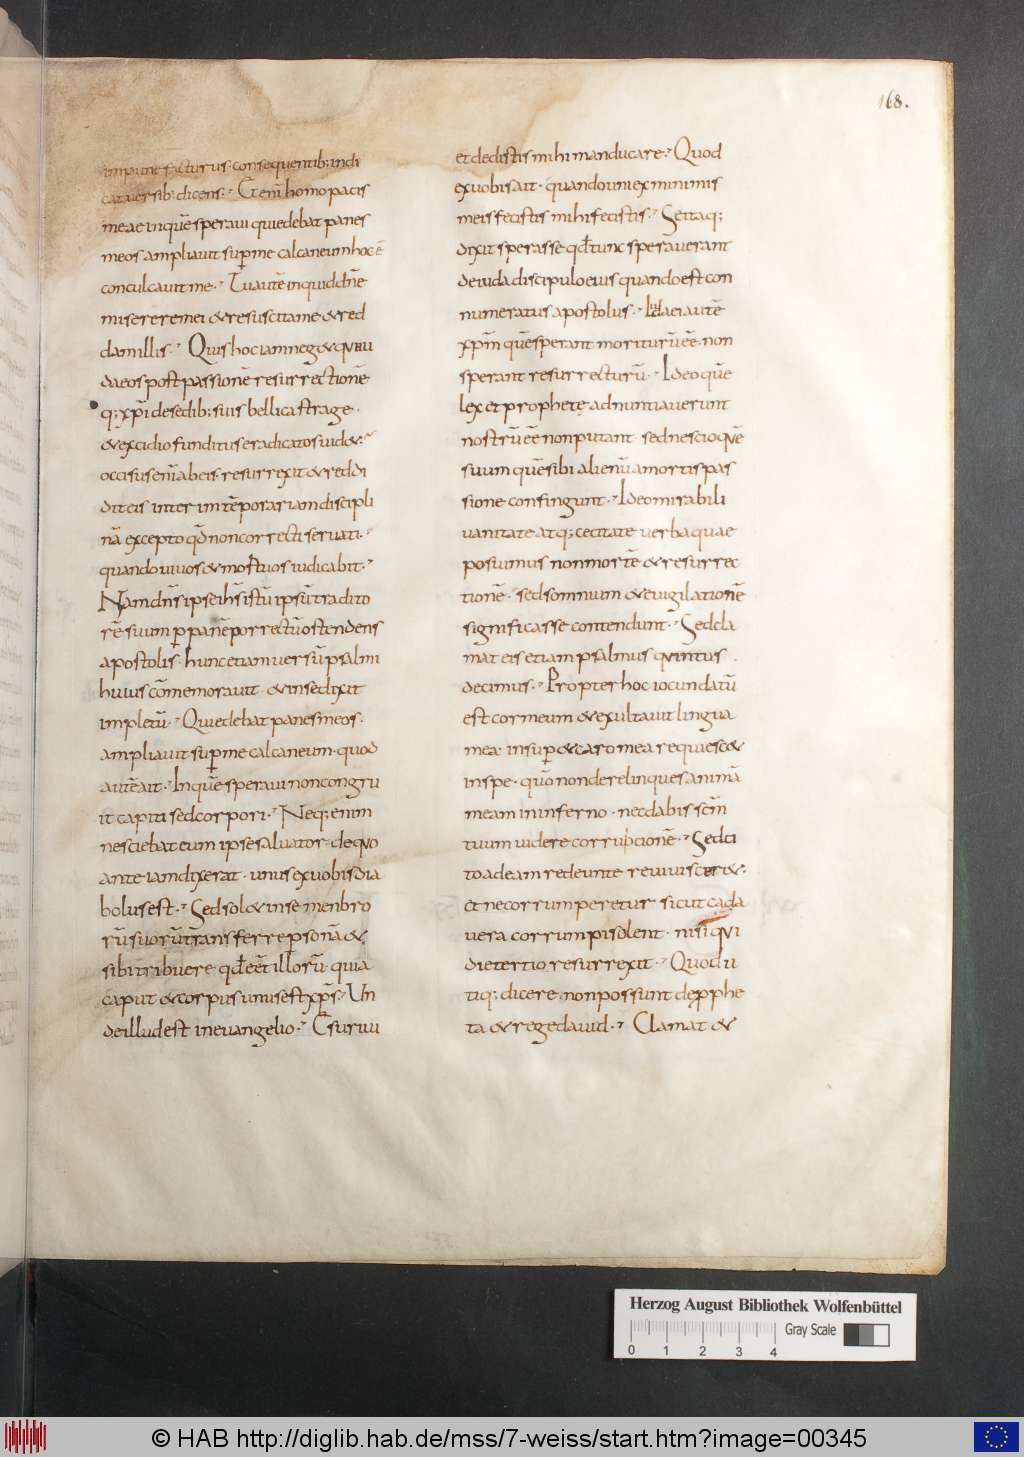 168.
impune facturus consequentib; indi
cat uersib; dicens. Et eni homo pacis
meae in quē speraui qui edebat panes
meos ampliauit sup me calcaneum hoc ē
conculcauit me. Tu autē inquid dn̄e
miserere mei & resuscita me & red
dam illis. Quis hoc iam neg& qui iu
daeos post passionē resurrectionē
q; xp̄i de sedib; suis bellica strage.
& excidio funditus eradicatos uid&.
occisus eni ab eis. resurrexit & reddi
dit eis interim tēporariam discipli
nā excepto qđ non correcti seruati.
quando uiuos & mortuos iudicabit.
Nam dn̄s ipse ih̄s istū ipsū tradito
rē suum p panē porrectū ostendens
apostolis. hunc etiam uersū psalmi
huius cōmemorauit. & in se dixit
impletū. Qui edebat panes meos.
ampliauit sup me calcaneum. quod
autē ait. In quē speraui non congru
it capiti sed corpori. Neq; enim
nesciebat eum ipse saluator. de quo
ante iam dixerat. unus ex uobis dia
bolus est. Sed sol& in se menbro
rū suorū transferre psonā &
sibi tribuere. qđ eēt illorū. quia
caput & corpus unus est xp̄s. Un
de illud est in euangelio. Esuriui
et dedistis mihi manducare. Quod
ex uobis ait. quando uni ex minimis
meis fecistis mihi fecistis. Se itaq;
dixit sperasse qđ tunc sperauerant
de iuda discipulo eius quando est con
numeratus apostolus. Iudaei autē
xp̄m quē sperant moriturū ēē. non
sperant resurrecturū. Ideo quē
lex et prophetę adnuntiauerunt
nostrū ēē non putant. sed nescio quē
suum quē sibi alienū a mortis pas
sione confingunt. Ideo mirabili
uanitate atq; cecitate uerba quae
posuimus non mortē & resurrec
tionē. sed somnium & euigilationē
significasse contendunt. Sed cla
mat eis etiam psalmus quintus
decimus. Propter hoc iocundatū
est cor meum & exultauit lingua
mea. insup & caro mea requiesc&
in spe. quō non derelinques animā
meam in inferno. nec dabis sc̄m
tuum uidere corruptionē. Sed ci
to ad eam redeunte reuiuiscer&.
et ne corrumperetur sicut cada
uera corrumpi solent. nisi qui
die tertio resurrexit. Quod u
tiq; dicere non possunt de pphe
ta & rege dauid. Clamat &
Herzog August Bibliothek Wolfenbüttel
Gray Scale
0 1 2 3 4
© HAB http://diglib.hab.de/mss/7-weiss/start.htm?image=00345